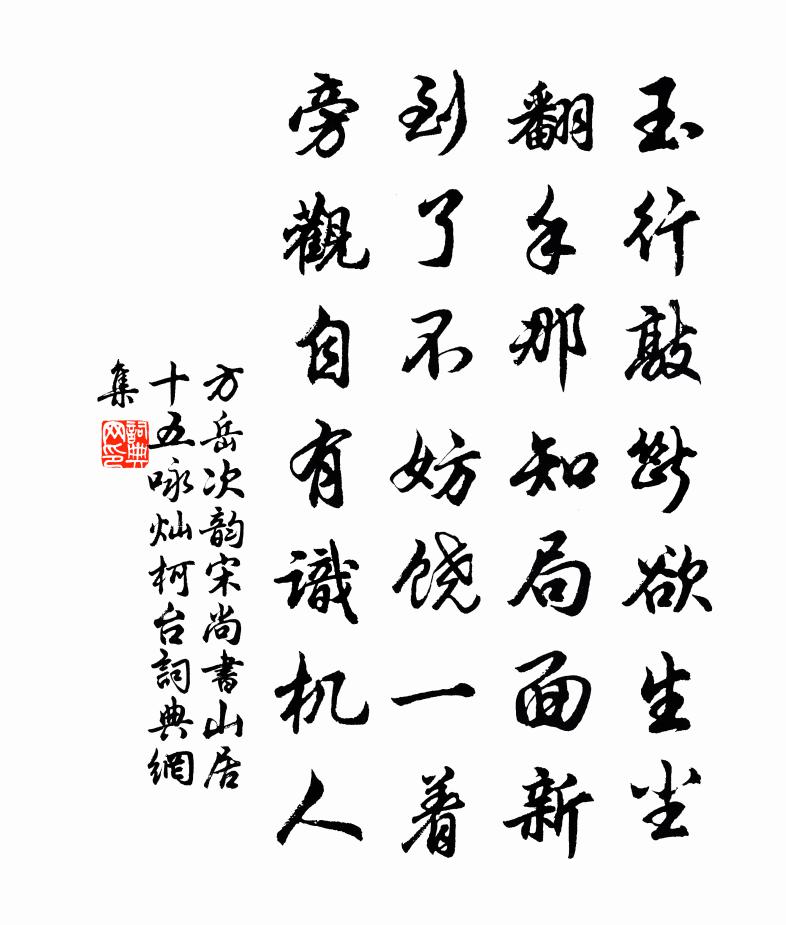 玉行敲断欲生尘
翻手那知局面新
到了不妨饶一着
旁觀自有識机人
方岳次韵宋尚書山居
十五咏灿柯台詞典網
集
詞典网印